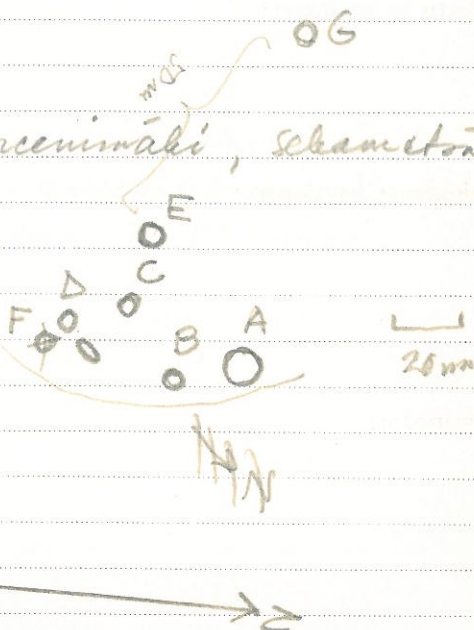 G
50 m
rcenimäki, sekametsä
E
C
D
F
B
A
20 m
N
N